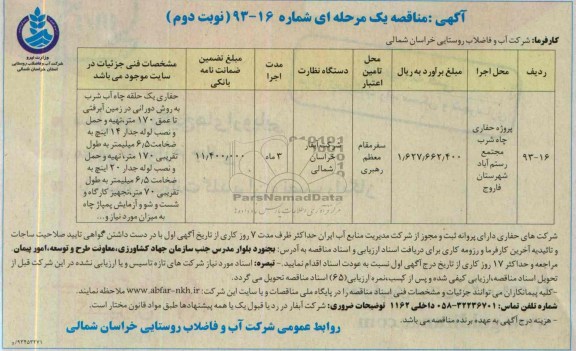 آگهی :مناقصه یک مرحله ای شماره ۱۶-۹۳ (نوبت دوم)
کارفرما: شرکت آب و فاضلاب روستایی خراسان شمالی
وزارت نیرو
شرکت آب و فاضلاب روستایی
استان خراسان شمالی
ردیف
محل اجرا
مبلغ برآورد به ریال
محل تامین اعتبار
دستگاه نظارت
مدت اجرا
مبلغ تضمین ضمانت نامه بانکی
مشخصات فنی جزئیات در سایت موجود می باشد
۹۳-۱۶
پروژه حفاری
چاه شرب
مجتمع
رستم آباد
شهرستان
فاروج
۱/۶۲۷/۶۶۲/۴۰۰
سفرمقام
معظم
رهبری
خراسان
شمالی
۳ ماه
حفاری یک حلقه چاه آب شرب
به روش دورانی در زمین آبرفتی
تا عمق ۱۷۰ متر،تهیه و حمل
و نصب لوله جدار ۱۴ اینچ به
ضخامت۶٫۵ میلیمتر به طول
تقریبی ۱۷۰ متر،تهیه وحمل
و نصب لوله جدار ۲۰ اینچ به
ضخامت ۶٫۵ میلیمتر به طول
تقریبی ۷۰ متر،تجهیز کارگاه و
شست و شو و آزمایش پمپاژ چاه
به میزان مورد نیاز و...
ParsNamadData
شرکت های حفاری دارای پروانه ثبت و مجوز از شرکت مدیریت منابع آب ایران حداکثر ظرف مدت ۷ روز کاری از تاریخ آگهی اول با در دست داشتن گواهی تایید صلاحیت ساجات
و تائیدیه آخرین کارفرما و رزومه کاری برای دریافت اسناد ارزیابی و اسناد مناقصه به آدرس: بجنورد بلوار مدرس جنب سازمان جهاد کشاورزی، معاونت طرح و توسعه، امور پیمان
مراجعه و حداکثر ۱۷ روز کاری از تاریخ درج آگهی اول نسبت به عودت اسناد اقدام نمایید. - تبصره: اسناد مورد نیاز شرکت های تازه تاسیس و یا ارزیابی نشده در این شرکت قبل از
تحویل اسناد مناقصه،ارزیابی کیفی شده و پس از کسب،نمره ارزیابی(۶۵) اسناد مناقصه تحویل می گردد.
-کلیه پیمانکاران می توانند جزئیات و مشخصات فنی اسناد مناقصه را در پایگاه ملی مناقصات و یا سایت این شرکت: www.abfar-nkh.ir ملاحظه نمایند.
شماره تلفن تماس: ۳۲۲۳۶۷۰۱-۰۵۸ داخلی ۱۱۶۲ توضیحات ضروری: شرکت آبفار در رد یا قبول یک یا همه پیشنهادها طبق مواد قانون مختار است.
- هزینه درج آگهی به عهده برنده مناقصه می باشد.
روابط عمومی شرکت آب و فاضلاب روستایی خراسان شمالی